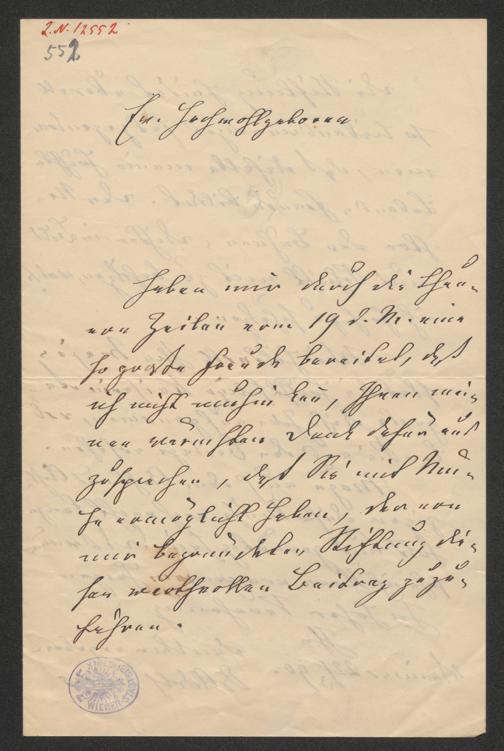 I.N. 12552
552
Ew. Hochwohlgeboren
haben mir durch die theu-
ren Zeilen vom 19 d. M. eine
so große Freude bereitet, daß
ich nicht umhin kan, Ihnen mei-
nen wärmsten Dank dafür aus
zusprechen, daß Sie mit
ermöglicht haben, der von
mir begründeten Stiftung die-
sen werthvollen Beitrag zuzu-
führen.